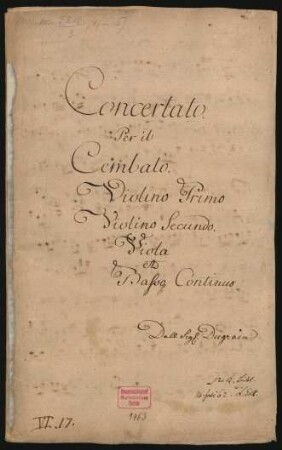 Concertato.
Per il
Cembalo.
Violino Primo
Violino Secundo.
Viola
et
Basso Continuo
Dugrain
VI. 17.
1463